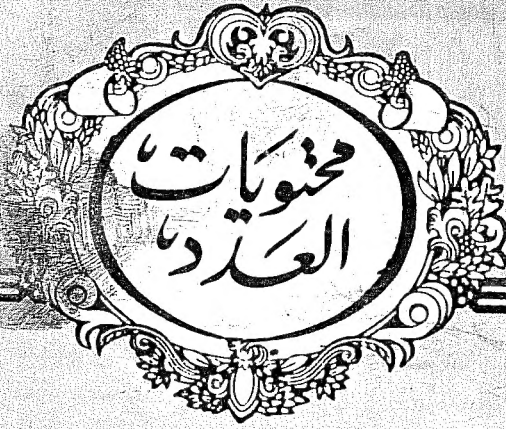 محتويات
العدد